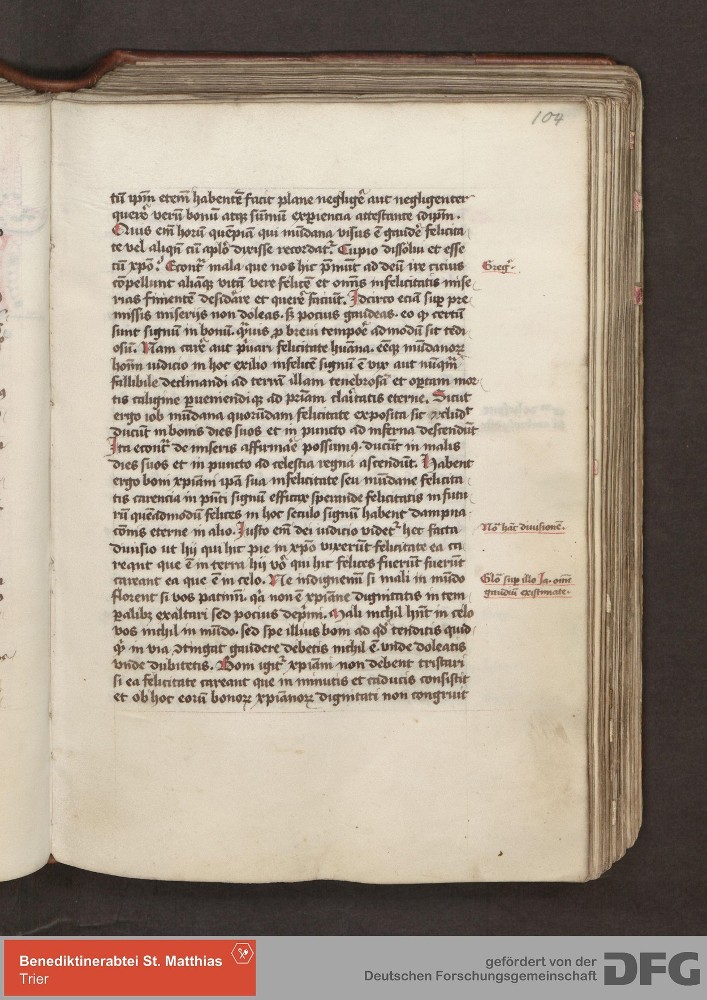 104
tū ip̄m etem̄ habentē facit plane negligē aut negligenter
querē verū bonū atq̨ sūmū exp̲iencia attestante idip̄m .
Quis em̄ horū quēpiā qui mūdana visus ē gaudē felicita
te vel aliqn̄ cū ap̄lo dixisse recordat᷑ . Cupio dissolui et esse
cū xp̄o . Econt᷑ mala que nos hic p̄mūt ad deū ire cicius
cōpellunt aliāq̨ vitā vere felicē et om̄is infelicitatis mise
rias finientē desid̓are et querē faciūt . Idcirco eciā sup̲ pre
missis miserijs non doleas . sꝫ pocius gaudeas . eo qp̄ certū
sunt signū in bonū . qͣuis p̲ breui tempoē admodū sit tedi
osū . Nam carē aut p̓uari felicitate hūana . eēq̨ mūdanoꝝ
hoīm iudicio in hoc exilio infelicē signū ē vix aut nūqͣm̄
fallibile declinandi ad terrā illam tenebrosā et op̲tam mor
tis caligine p̲ueniendiq̨ ad p̓riam claritatis eterne . Sicut
ergo iob mūdana quorūdam felicitate exposita sic ꝯclud᷑
ducūt in bonis dies suos et in puncto ad inferna descendūt
Ita econt᷑ de miseris affirmaē possumꝰ . ducūt in malis
dies suos et in puncto ad celestia regna ascendūt . Habent
ergo boni xp̄iani ip̄a sua infelicitate seu mūdane felicita
tis carencia in pn̄ti signū efficax sperande felicitatis in futu
rū quēadmodū felices in hoc seculo signū habent dampna
cōnis eterne in alio . Iusto em̄ dei iudicio videt᷑ hec facta
diuisio ut hij qui hic pie in xp̄o vixerūt felicitate ea ca
reant que ē in terra hij vō qui hic felices fuerūt fuerūt
careant ea que ē in celo . Ne indignemī si mali in mūdo
florent si vos patimī . qͣa non ē xp̄iane dignitatis in tem
p̲alibꝫ exaltari sed pocius dep̓mi . Mali nichil hn̄t in celo
vos nichil in mūdo . sed spe illius boni ad qd̓ tenditis quid
qp̄ in via ꝯtingat gaudere debetis nichil ē vnde doleatis
vnde dubitetis . Boni igit᷑ xp̄iani non debent tristari
si ea felicitate careant que in minutis et caducis consistit
et ob hoc eorū bonoꝝ xp̄ianoꝝ dignitati non congruit
Greg᷑ .
No᷑ hāc diuisionē .
Glō sup̲ illo Ja . om̄e
gaudiū existimate .
Benediktinerabtei St. Matthias
Trier
gefördert von der
Deutschen Forschungsgemeinschaft
DFG